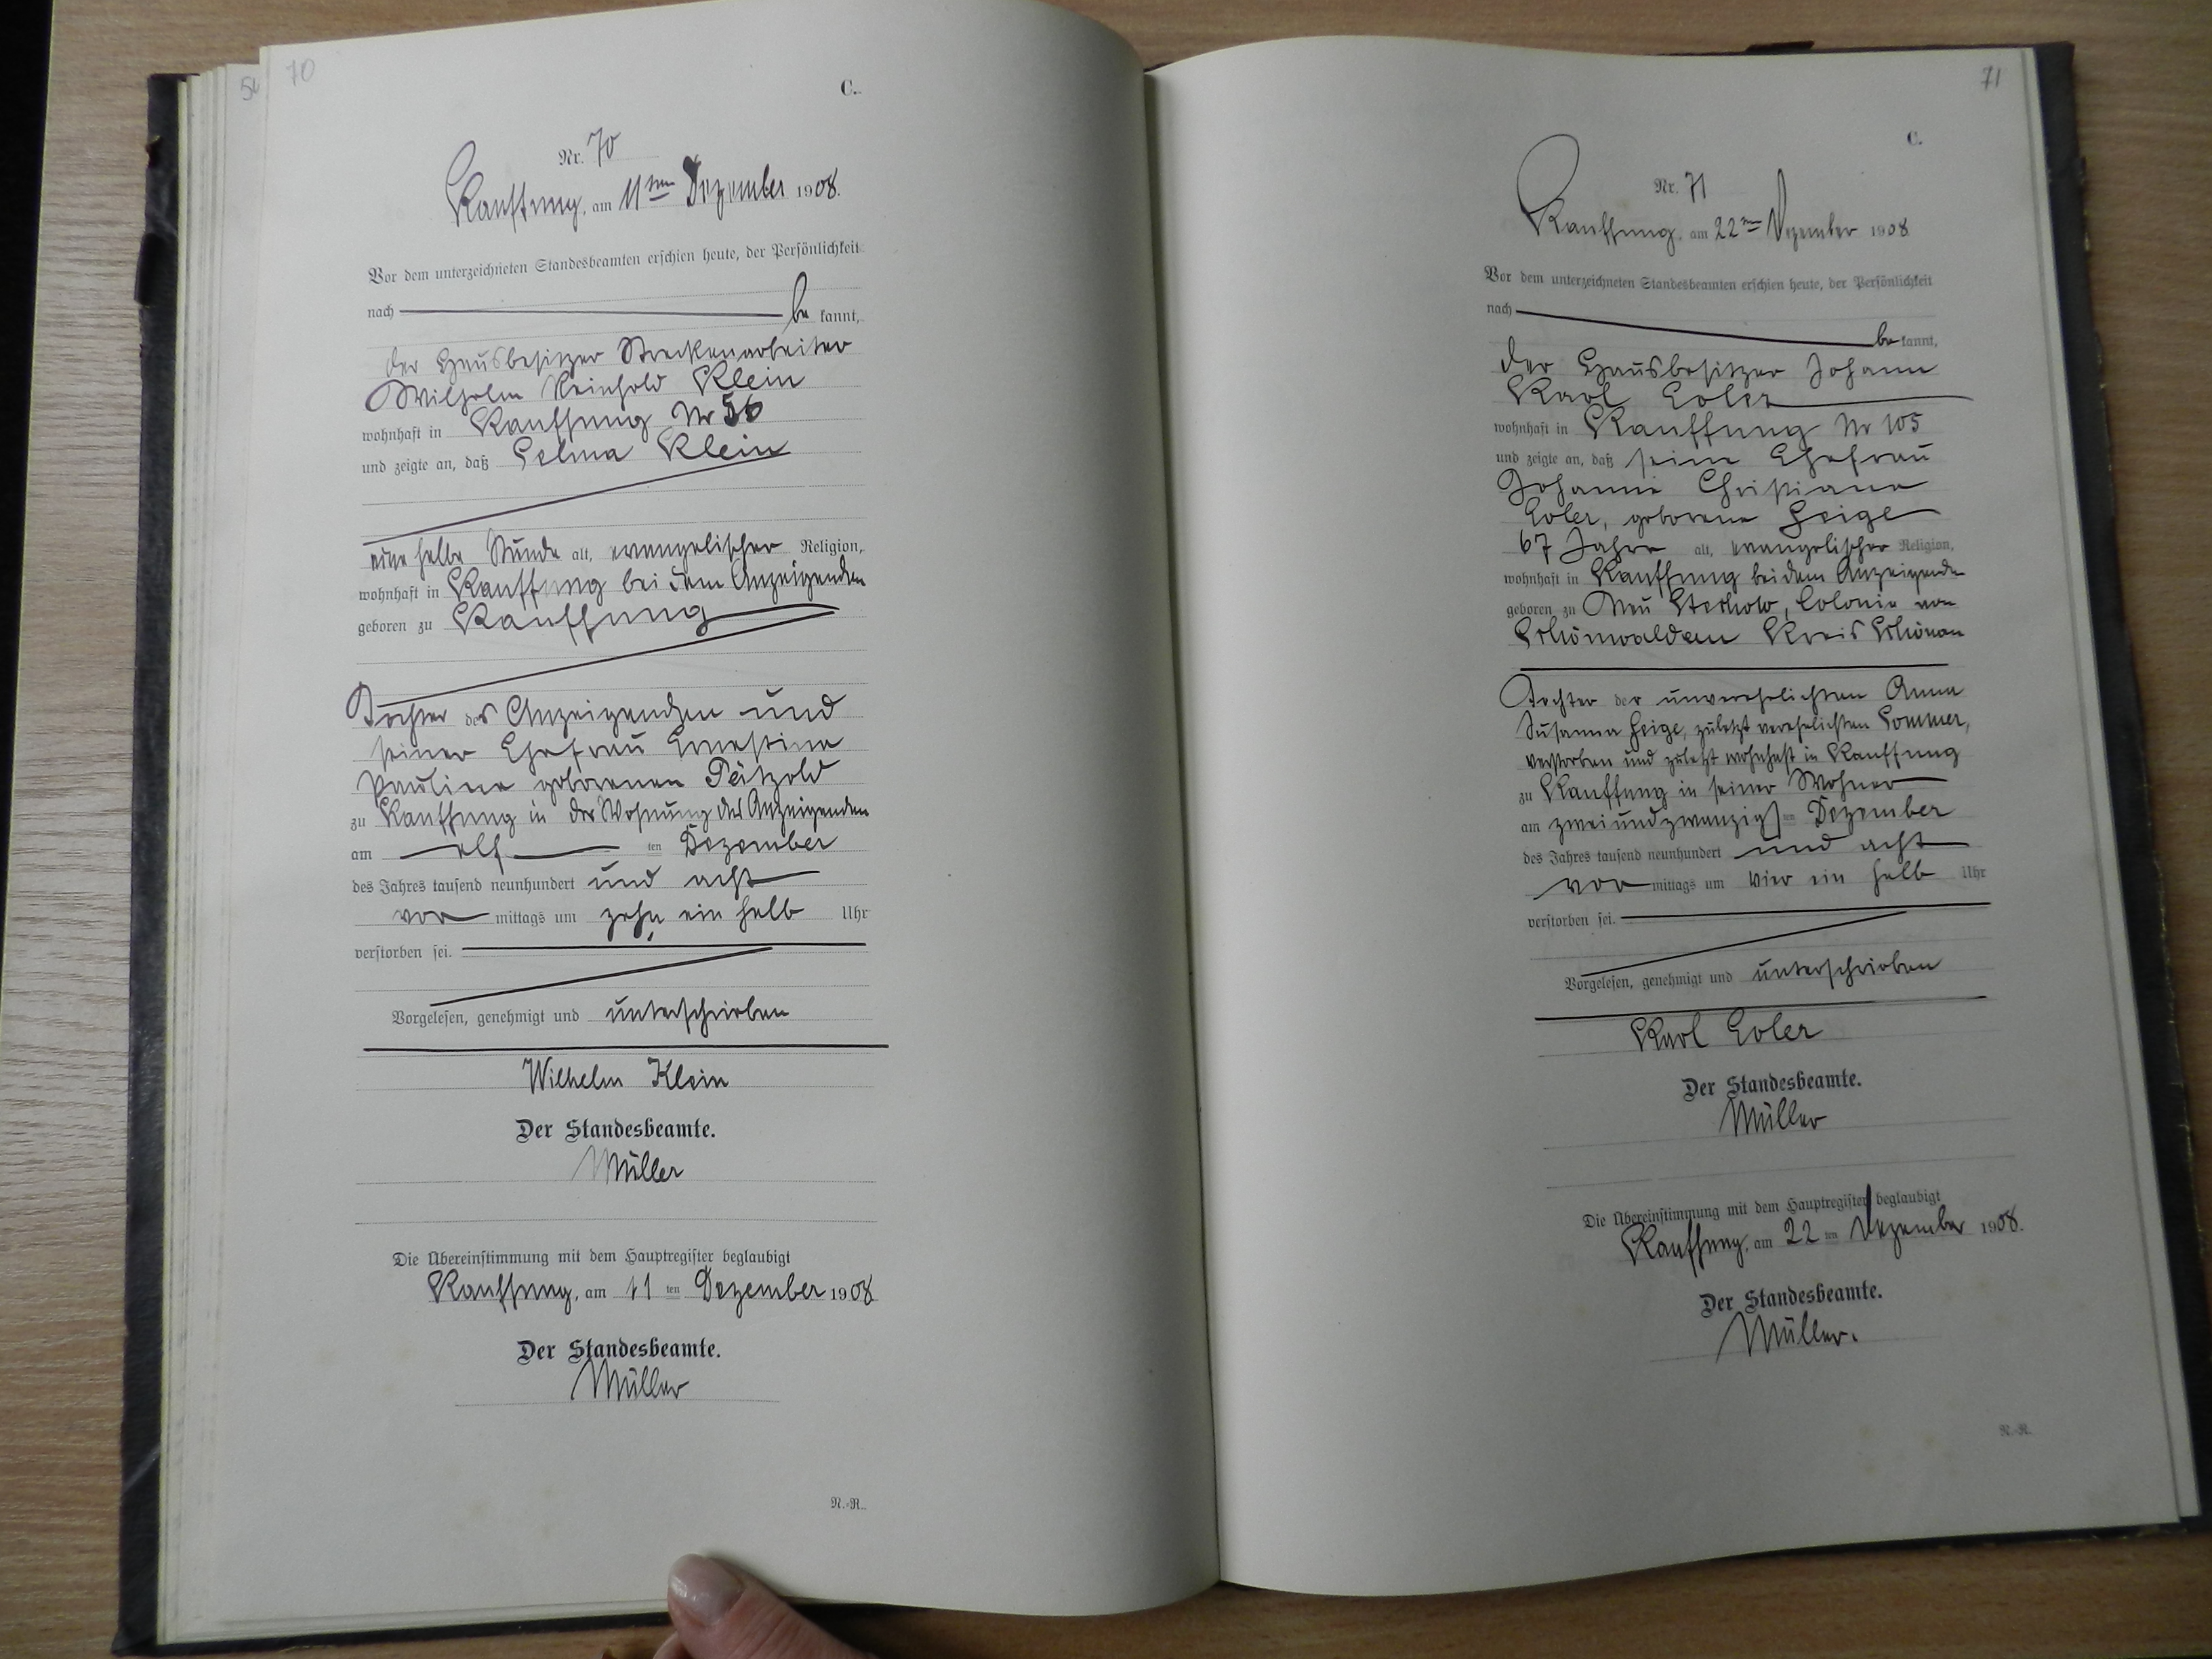 54
70
C.
Nr. 70
Kauffung, am 11ten Dezember 1908.
Vor dem unterzeichneten Standesbeamten erschien heute, der Persönlichkeit
nach be kannt,
der Hausbesitzer Streckenarbeiter
Wilhelm Reinhold Klein
wohnhaft in Kauffung Nr 56
und zeigte an, daß Selma Klein
eine halbe Stunde alt, evangelischer Religion,
wohnhaft in Kauffung bei dem Anzeigenden
geboren zu Kauffung
Tochter des Anzeigenden und
seiner Ehefrau Ernestine
Pauline geborenen Pätzold
zu Kauffung in der Wohnung des Anzeigenden
am elf ten Dezember
des Jahres tausend neunhundert und acht
vor mittags um zehn ein halb Uhr
verstorben sei.
Vorgelesen, genehmigt und unterschrieben
Wilhelm Klein
Der Standesbeamte.
Müller
Die Übereinstimmung mit dem Hauptregister beglaubigt
Kauffung, am 11 ten Dezember 1908
Der Standesbeamte.
Müller
N.-R.
71
C.
Nr. 71
Kauffung, am 22ten Dezember 1908
Vor dem unterzeichneten Standesbeamten erschien heute, der Persönlichkeit
nach be kannt,
der Hausbesitzer Johann
Karl
wohnhaft in Kauffung Nr 105
und zeigte an, daß seine Ehefrau
Johanne Christiane
geborene Geige
67 Jahre alt, evangelischer Religion,
wohnhaft in Kauffung bei dem Anzeigende
geboren zu Neu Colonie von
Schönwaldau Kreis Schönau
Tochter der unverehelichten Anna
Susanna Geige, zuletzt verehelichten Sommer,
verstorben und zuletzt wohnhaft in Kauffung
zu Kauffung in seiner Wohner
am zweiundzwanzigsten Dezember
des Jahres tausend neunhundert und acht
vor mittags um vier ein halb Uhr
verstorben sei.
Vorgelesen, genehmigt und unterschrieben
Karl
Der Standesbeamte.
Müller
Die Übereinstimmung mit dem Hauptregister beglaubigt
Kauffung, am 22 ten Dezember 1908.
Der Standesbeamte.
Müller.
N.-R.